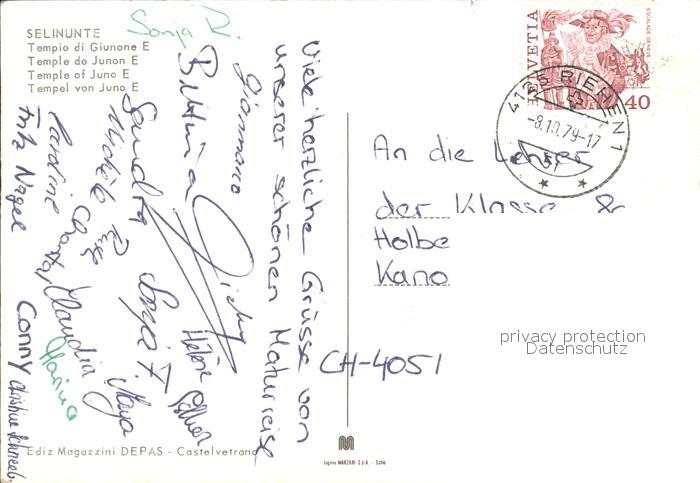 SELINUNTE
Tempio di Giunone E
Temple de Junon E
Temple of Juno E
Tempel von Juno E
Sonja R.
Viele herzliche Grüsse von
unserer schönen Maturreise
Gianmarco
Bettina
Sandra
Caroline
Fritz Nagel
Claudia
Sonja F.
Maya
Marina
Conny
HELVETIA
ESCALADE GENEVE
40
4125 RIEHEN 1
-8.10.79-17
An die Lehrer
der Klasse 8
Holbe
Kano
CH-4051
privacy protection
Datenschutz
Ediz Magazzini DEPAS - Castelvetrano